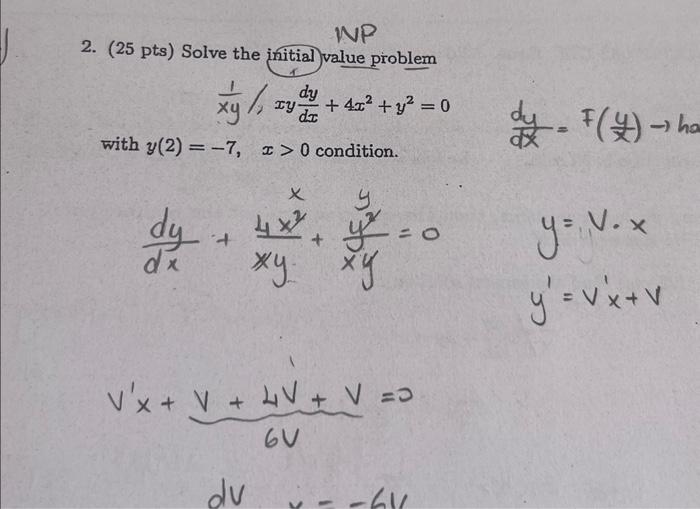 INP
2. (25 pts) Solve the initial value problem
1/xy /, xy dy/dx + 4x² + y² = 0
dy/dx = F(y/x) → ho
with y(2) = −7, x > 0 condition.
x y
dy/dx + 4x²/xy + y²/xy = 0
y = V · x
y' = V'x + V
V'x + V + 4V + V = 0
6V
dV x = -6V